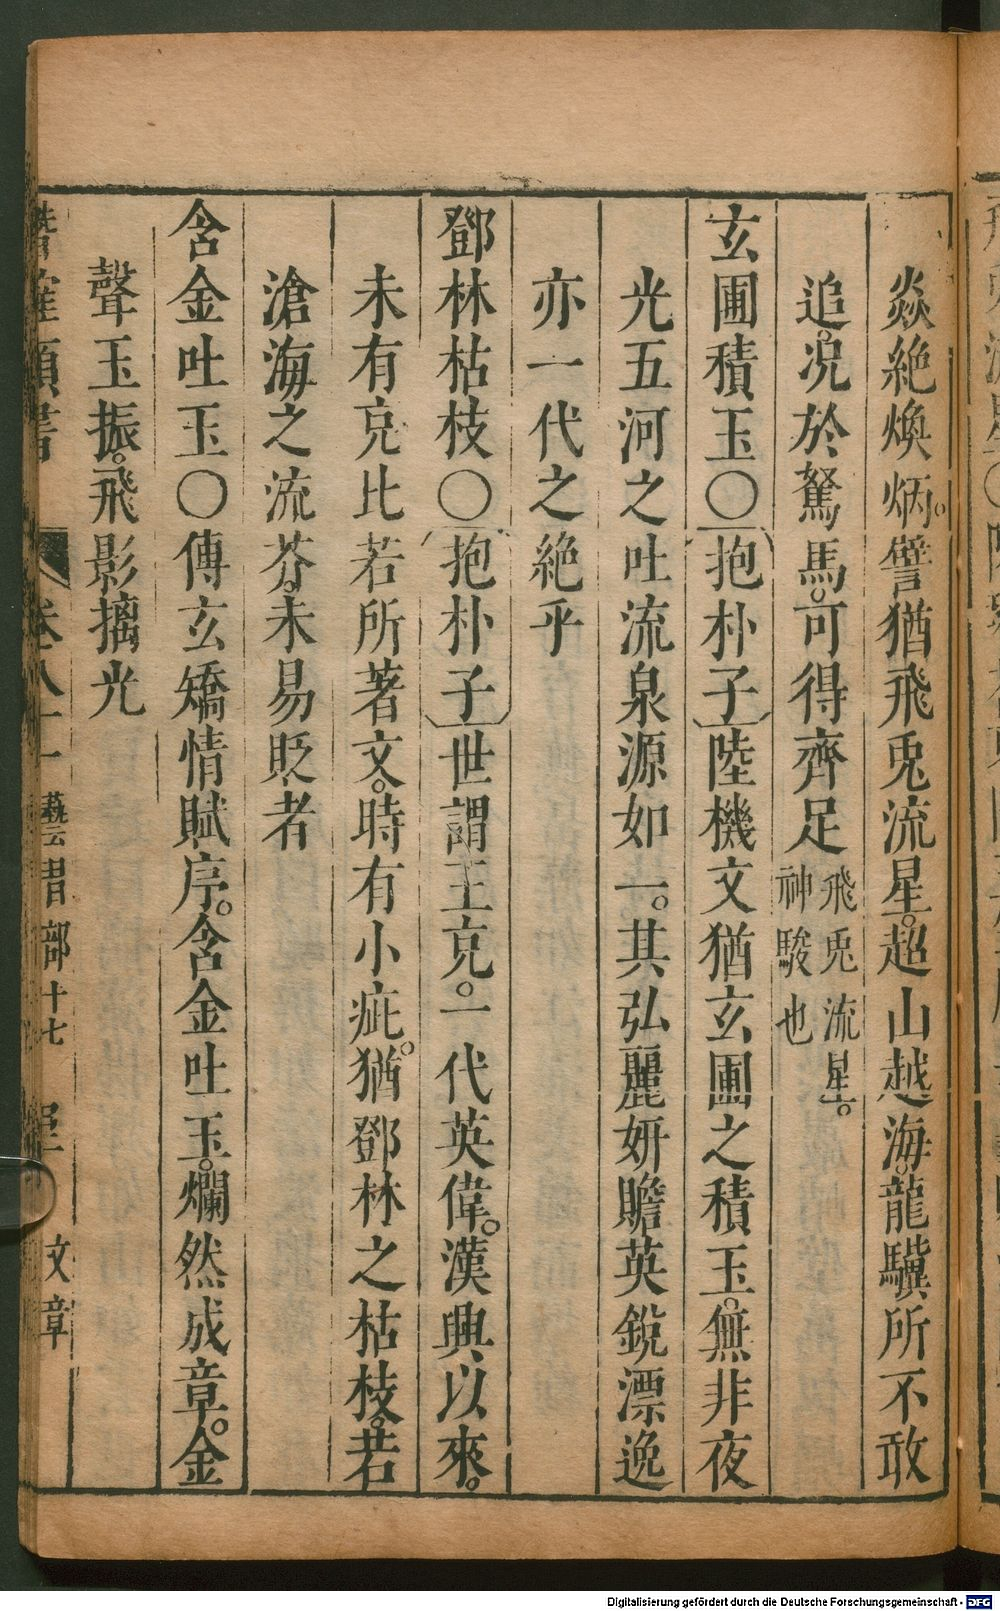 焱絶煥炳。譬猶飛兎流星。超山越海。龍驥所不敢
追。况於駑馬。可得齊足飛兎流星。神駿也
玄圃積玉〇抱朴子陸機文猶玄圃之積玉。無非夜
光五河之吐流泉源如一。其弘麗妍贍英銳漂逸
亦一代之絶乎
鄧林枯枝〇抱朴子世謂王充。一代英偉。漢興以來。
未有充比若所著文。時有小疵。猶鄧林之枯枝。若
滄海之流芥。未易貶者
含金吐玉〇傅玄矯情賦序。含金吐玉。爛然成章。金
聲玉振。飛影摛光
卷八十一 藝習部十七 文章
Digitalisierung gefördert durch die Deutsche Forschungsgemeinschaft - DFG